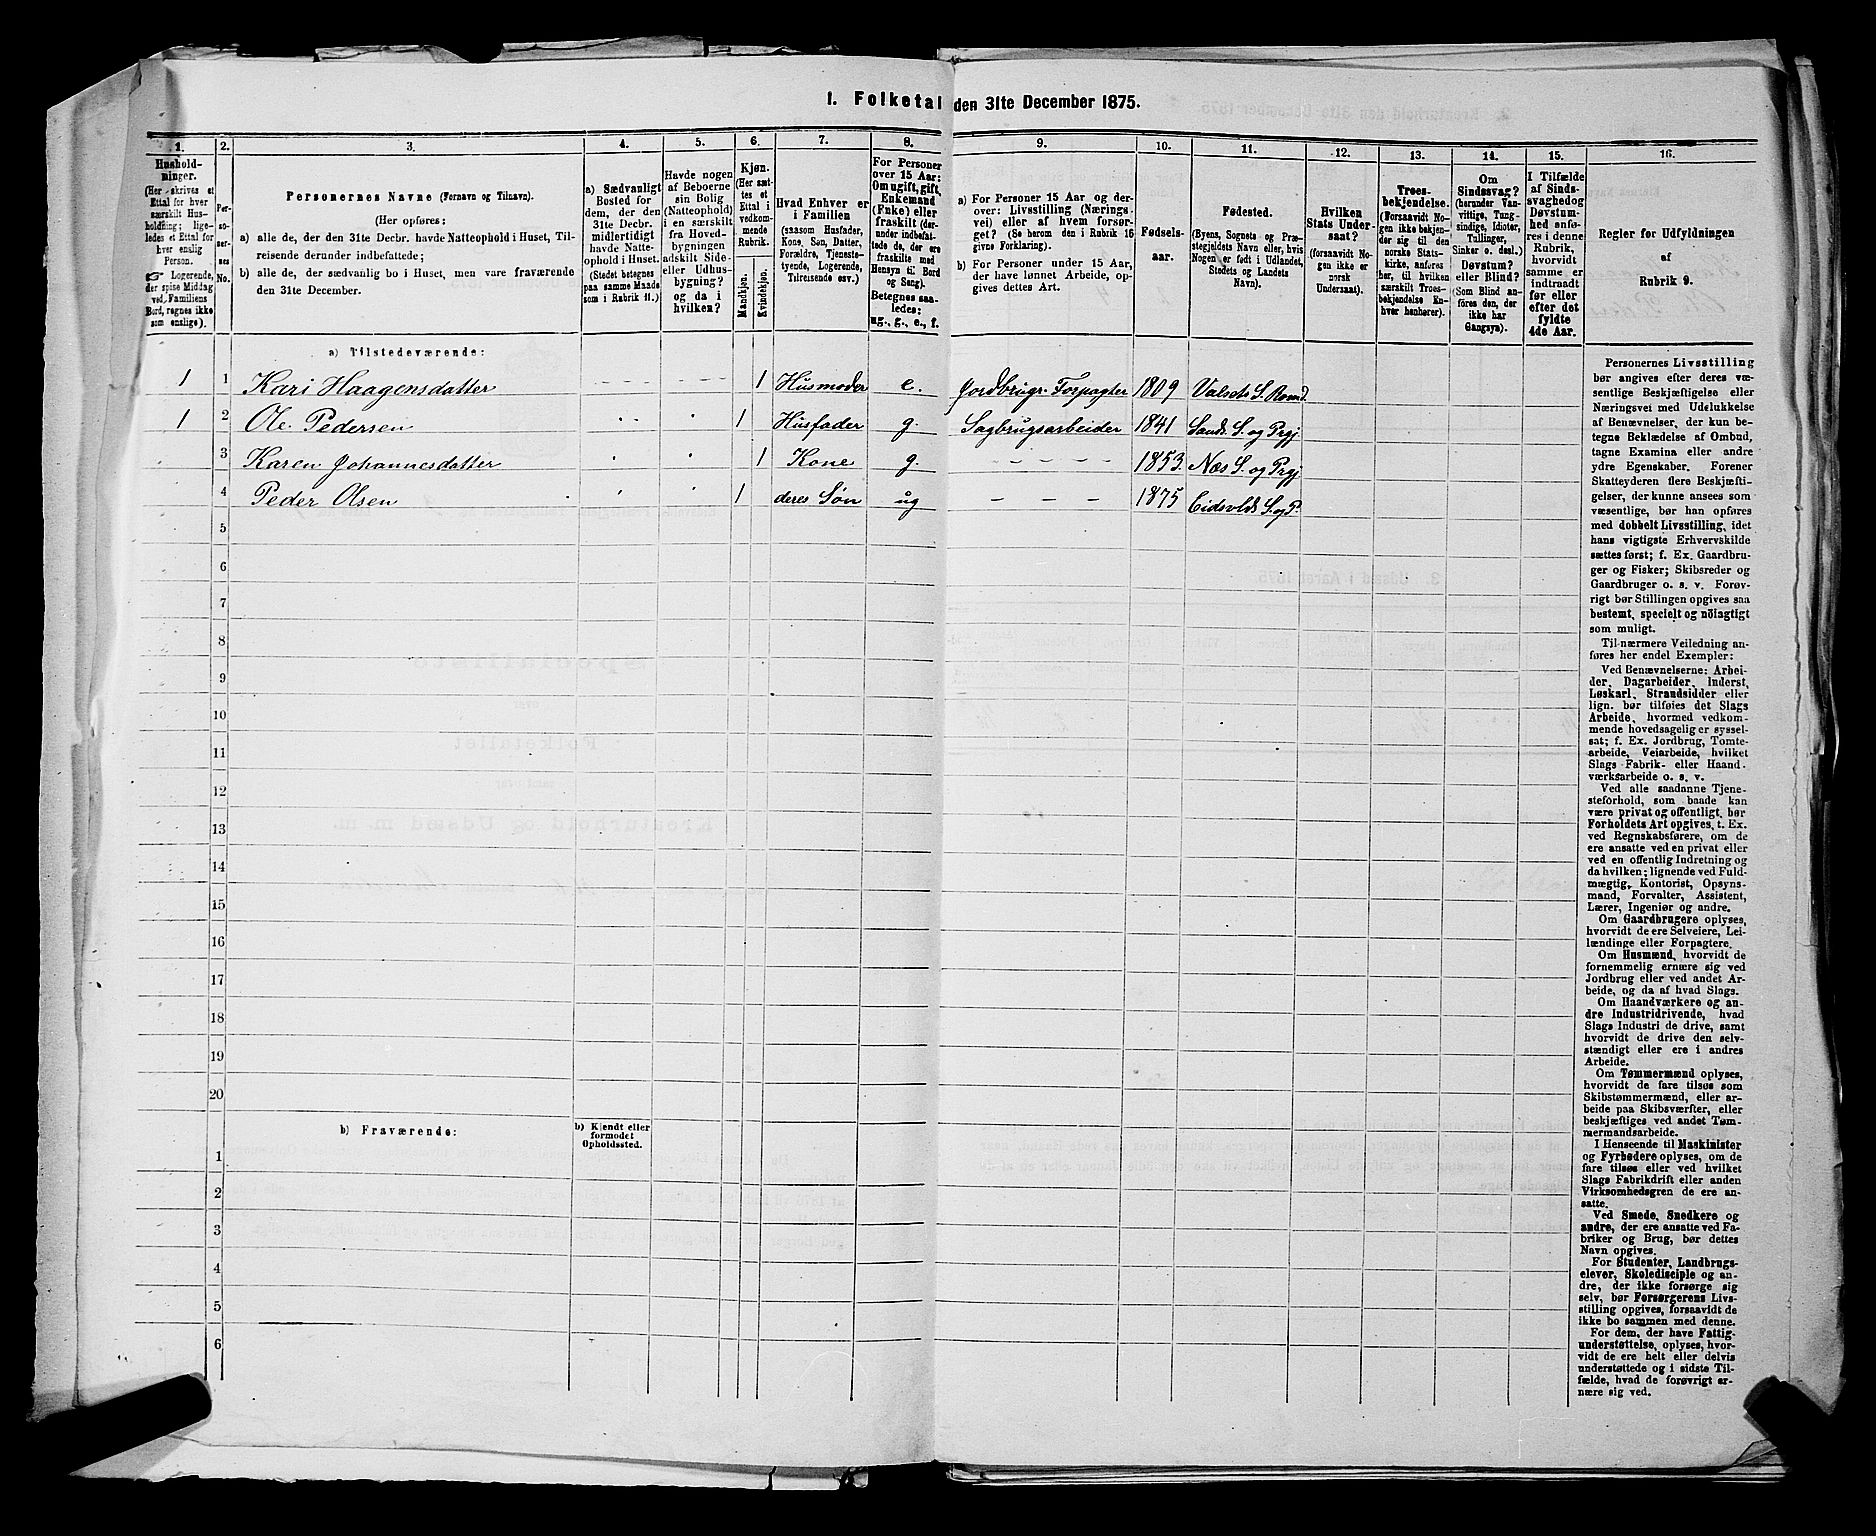 1. Folketal den 31te December 1875.
1.
Hushold-
ninger.
(Her skrives et
Ettal for hver
særskilt Hus-
holdning; lige-
ledes et Ettal for
hver enslig
Person.
☞ Logerende,
der spise Middag
ved Familiens
Bord, regnes ikke
som enslige).
2.
Per-
so-
ner-
nes
No.
3.
Personernes Navne (Fornavn og Tilnavn).
(Her opføres:
a) alle de, der den 31te Decbr. havde Natteophold i Huset, Til-
reisende derunder indbefattede;
b) alle de, der sædvanlig bo i Huset, men vare fraværende
den 31te December.
4.
a) Sædvanligt
Bosted for
dem, der den
31te Decbr.
midlertidigt
havde Natte-
ophold i Huset.
(Stedet betegnes
paa samme Maade
som i Rubrik 11.)
5.
Havde nogen
af Beboerne
sin Bolig
(Natteophold)
i en særskilt
fra Hoved-
bygningen
adskilt Side-
eller Udhus-
bygning?
og da i
hvilken?
6.
Kjøn.
(Her sæt-
tes et
Ettal i
vedkom-
mende
Rubrik.
Mandkjøn.
Kvindekjøn.
7.
Hvad Enhver er
i Familien
(saasom Husfader,
Kone, Søn, Datter,
Forældre, Tjeneste-
tyende, Logerende,
Tilreisende osv.)
8.
For Personer
over 15 Aar:
Om ugift, gift,
Enkemand
(Enke) eller
fraskilt (der-
under indbefat-
tede de, der ere
fraskilte med
Hensyn til Bord
og Seng).
Betegnes saa-
ledes:
ug., g., e., f.
9.
a) For Personer 15 Aar og der-
over: Livsstilling (Nærings-
vei) eller af hvem forsør-
get? (Se herom den i Rubrik 16
givne Forklaring).
b) For Personer under 15 Aar,
der have lønnet Arbeide, op-
gives dettes Art.
10.
Fødsels-
aar.
11.
Fødested.
(Byens, Sognets og Præ-
stegjeldets Navn eller, hvis
Nogen er født i Udlandet,
Stedets og Landets
Navn).
12.
Hvilken
Stats Under-
saat?
(forsaavidt No-
gen ikke er
norsk
Undersaat).
13.
Troes-
bekjendelse.
(Forsaavidt No-
gen ikke bekjen-
der sig til den
norske Stats-
kirke, anføres
her, til hvilken
særskilt Troes-
bekjendelse En-
hver henhører).
14.
Om
Sindssvag?
(herunder Van-
vittige, Tung-
sindige, Idioter,
Tullinger,
Sinker o. desl.).
Døvstum?
eller Blind?
(Som Blind an-
føres den, der
ikke har
Gangsyn).
15.
I Tilfælde
af Sinds-
svaghed og
Døvstum-
hed anfø-
res i denne
Rubrik,
hvorvidt
samme er
indtraadt
før eller
efter det
fyldte
4de Aar.
16.
Regler for Udfyldningen
af
Rubrik 9.
a) Tilstedeværende:
1 1 Kari Haagensdatter - - - - - - 1 Husmoder e. Jordbrugs-Forpagter 1809 Valsets S. Romd
1 2 Ole Pedersen 1 Husfader g. Sagbrugsarbeider 1841 Sands S. og Prgj
3 Karen Johannesdatter 1 Kone g. - - - - - 1853. Næs S. og Prgj
4 Peder Olsen 1 deres Søn ug - - - 1875 Eidsvolds S. og P.
5
6
7
8
9
10
11
12
13
14
15
16
17
18
19
20
b) Fraværende:
b) Kjendt eller
formodet
Opholdssted.
1
2
3
4
5
6
Personernes Livsstilling
bør angives efter deres væ-
sentlige Beskjæftigelse eller
Næringsvei med Udelukkelse
af Benævnelser, der kun be-
tegne Beklædelse af Ombud,
tagne Examina eller andre
ydre Egenskaber. Forener
Skatteyderen flere Beskjæfti-
gelser, der kunne ansees som
væsentlige, bør han opføres
med dobbelt Livsstilling, idet
hans vigtigste Erhvervskilde
sættes først; f. Ex. Gaardbru-
ger og Fisker; Skibsreder og
Gaardbruger o. s. v. Forøv-
rigt bør Stillingen opgives saa
bestemt, specielt og nøiagtigt
som muligt.
Til nærmere Veiledning an-
føres her endel Exempler:
Ved Benævnelserne: Arbei-
der, Dagarbeider, Inderst,
Løskarl, Strandsidder eller
lign. bør tilføies det Slags
Arbeide, hvormed vedkom-
mende hovedsagelig er syssel-
sat; f. Ex. Jordbrug, Tomte-
arbeide, Veiarbeide, hvilket
Slags Fabrik- eller Haand-
værksarbeide o. s. v.
Ved alle saadanne Tjene-
steforhold, som baade kan
være privat og offentligt, bør
Forholdets Art opgives, t. Ex.
ved Regnskabsførere, om de
ere ansatte ved en privat eller
ved en offentlig Indretning og
da hvilken; lignende ved Fuld-
mægtig, Kontorist, Opsyns-
mand, Forvalter, Assistent,
Lærer, Ingeniør og andre.
Om Gaardbrugere oplyses,
hvorvidt de ere Selveiere, Lei-
lændinge eller Forpagtere.
Om Husmænd, hvorvidt de
fornemmelig ernære sig ved
Jordbrug eller ved andet Ar-
beide, og da af hvad Slags.
Om Haandværkere og an-
dre Industridrivende, hvad
Slags Industri de drive, samt
hvorvidt de drive den selv-
stændigt eller ere i andres
Arbeide.
Om Tømmermænd oplyses,
hvorvidt de fare tilsøs som
Skibstømmermænd, eller ar-
beide paa Skibsværfter, eller
beskjæftiges ved andet Tøm-
mermandsarbeide.
I Henseende til Maskinister
og Fyrbødere oplyses, om de
fare tilsøs eller ved hvilket
Slags Fabrikdrift eller anden
Virksomhedsgren de ere an-
satte.
Ved Smede, Snedkere og
andre, der ere ansatte ved Fa-
briker og Brug, bør dettes
Navn opgives.
For Studenter, Landbrugs-
elever, Skoledisciple og an-
dre, der ikke forsørge sig
selv, bør Forsørgerens Livs-
stilling opgives, forsaavidt de
ikke bo sammen med denne.
For dem, der have Fattig-
understøttelse, oplyses, hvor-
vidt de ere helt eller delvis
understøttede og i sidste Til-
fælde, hvad de forøvrigt er-
nære sig ved.